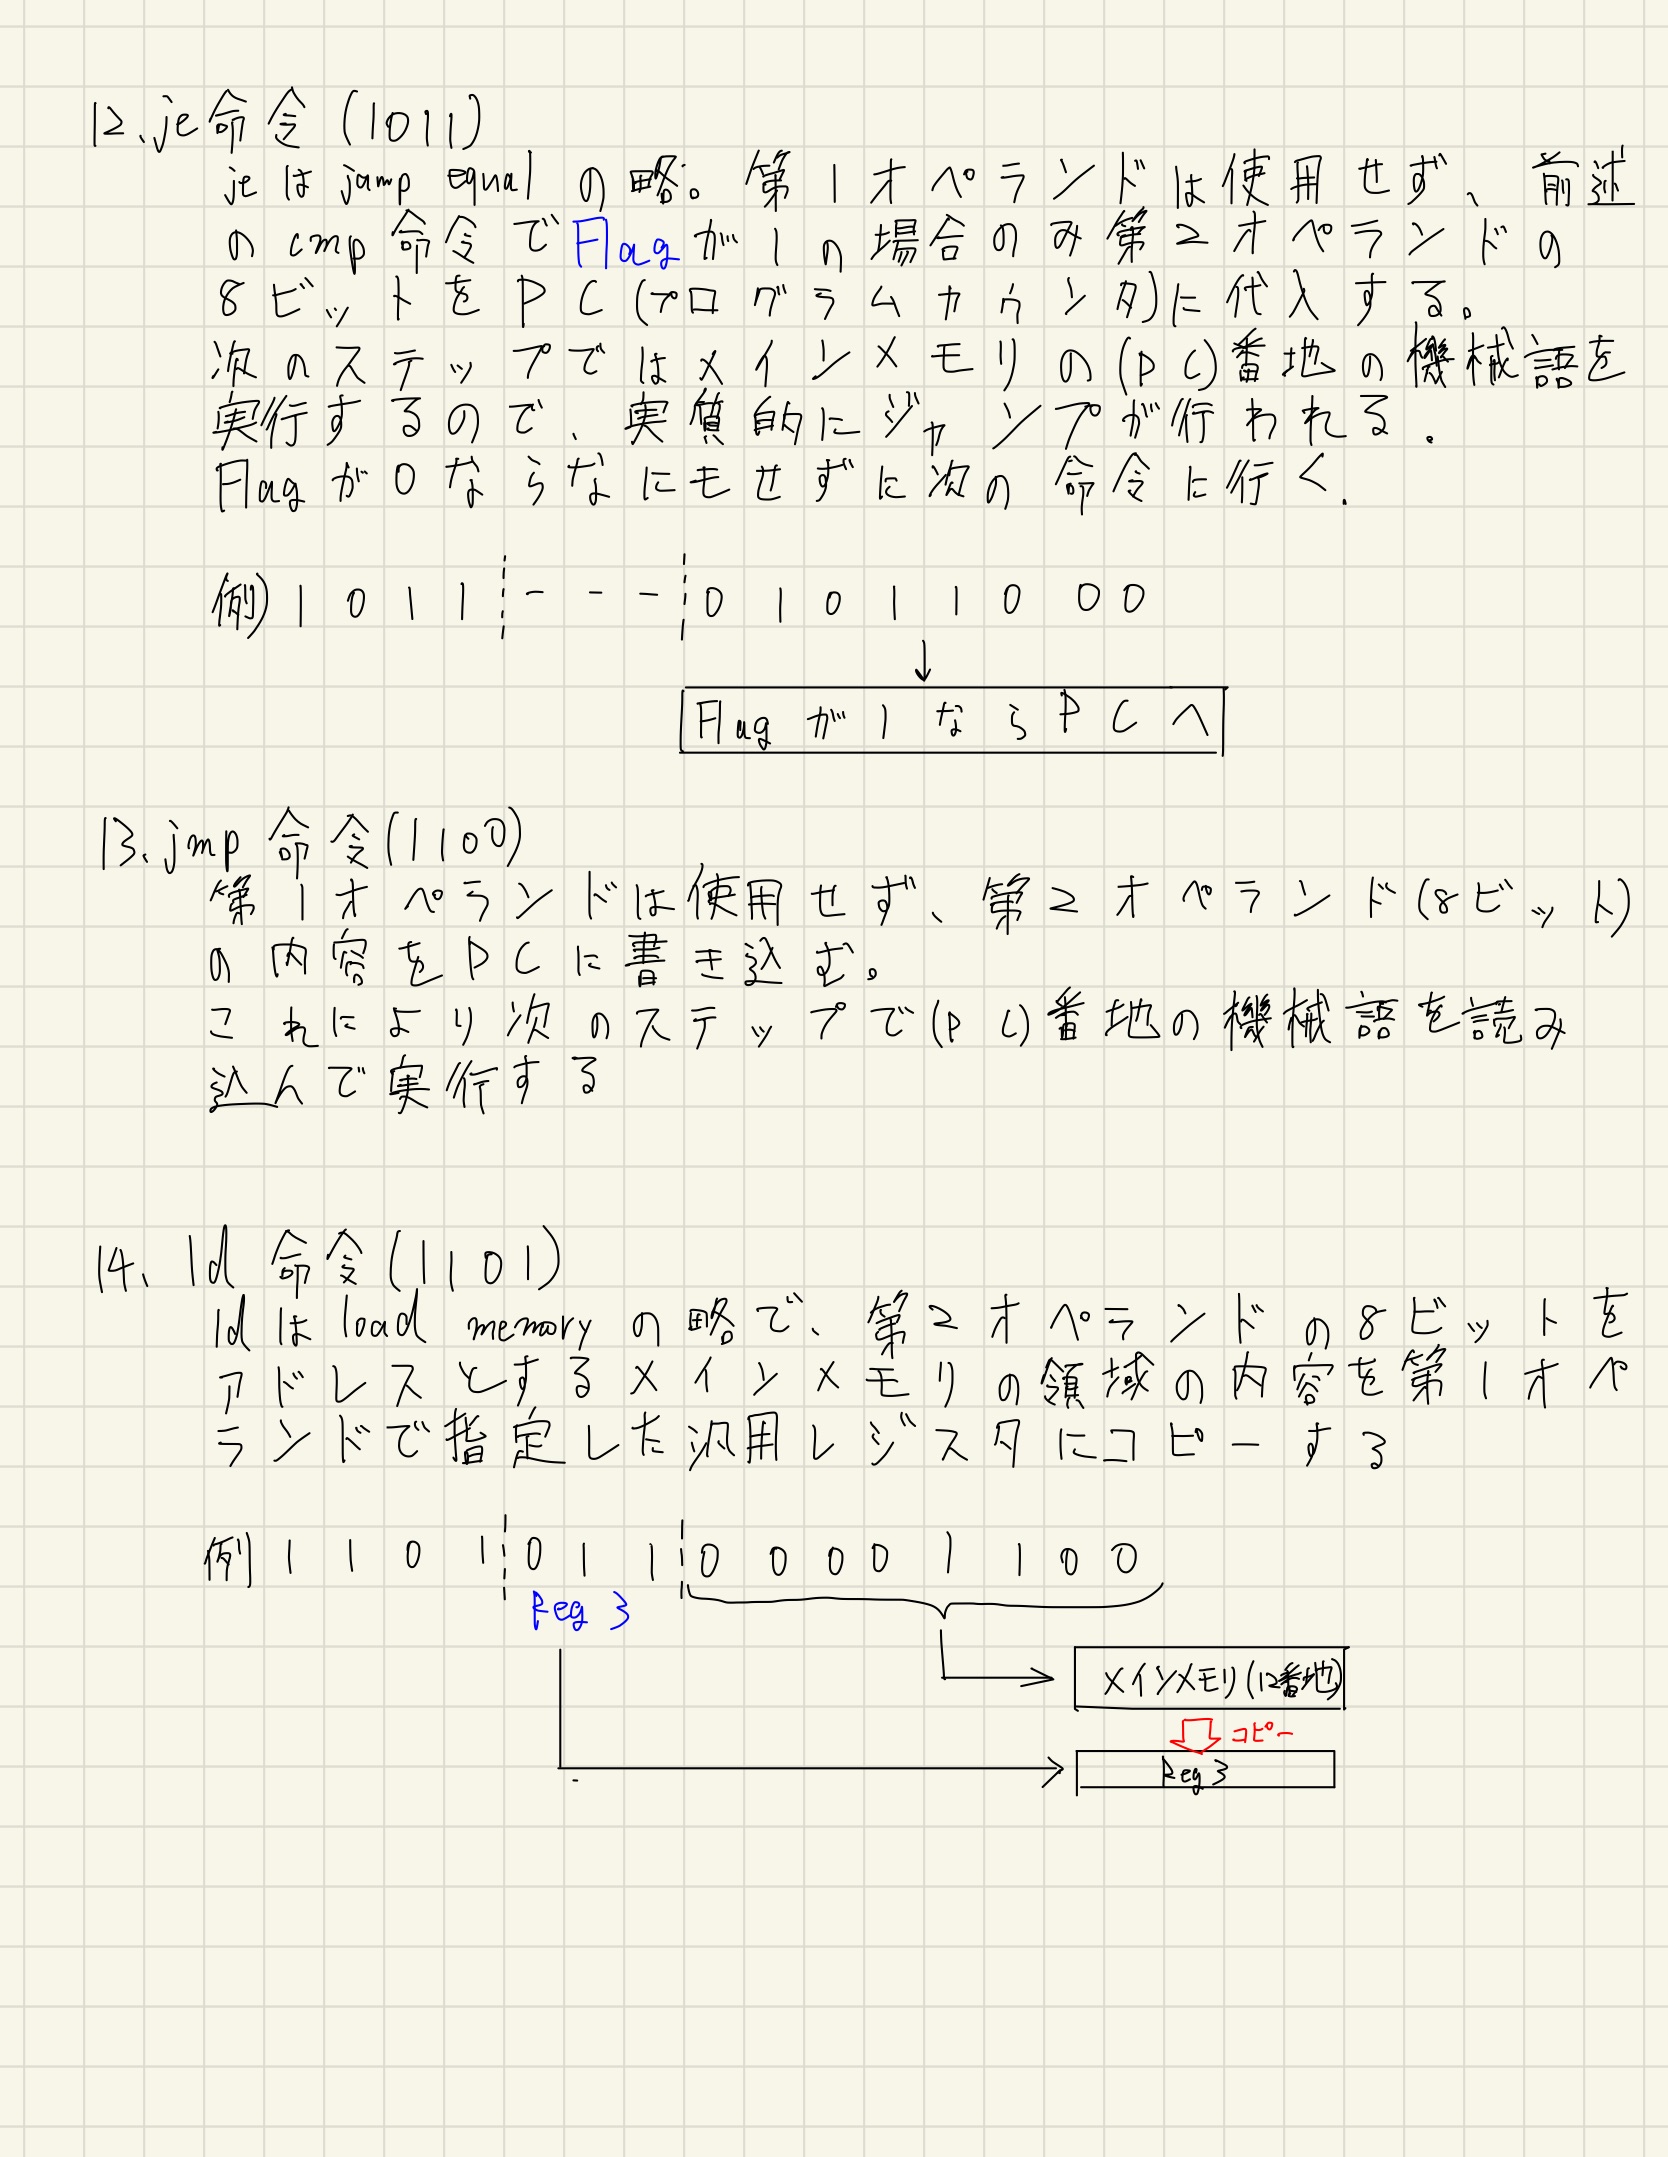 12.je命令(1011)
jeはjamp equalの略。第1オペランドは使用せず、前述
のcmp命令でFlagが1の場合のみ第2オペランドの
8ビットをPC(プログラムカウンタ)に代入する。
次のステップではメインメモリの(PC)番地の機械語を
実行するので、実質的にジャンプが行われる.
Flagが0ならなにもせずに次の命令に行く.
例) 1 0 1 1 - - - 0 1 0 1 1 0 0 0
↓
Flagが1ならPCへ
13.jmp命令(1100)
第1オペランドは使用せず、第2オペランド(8ビット)
の内容をPCに書き込む。
これにより次のステップで(PC)番地の機械語を読み
込んで実行する
14.ld命令(1101)
ldはload memoryの略で、第2オペランドの8ビットを
アドレスとするメインメモリの領域の内容を第1オペ
ランドで指定した汎用レジスタにコピーする
例) 1 1 0 1 0 1 1 0 0 0 0 1 1 0 0
Reg 3
メインメモリ(12番地)
コピー
Reg 3